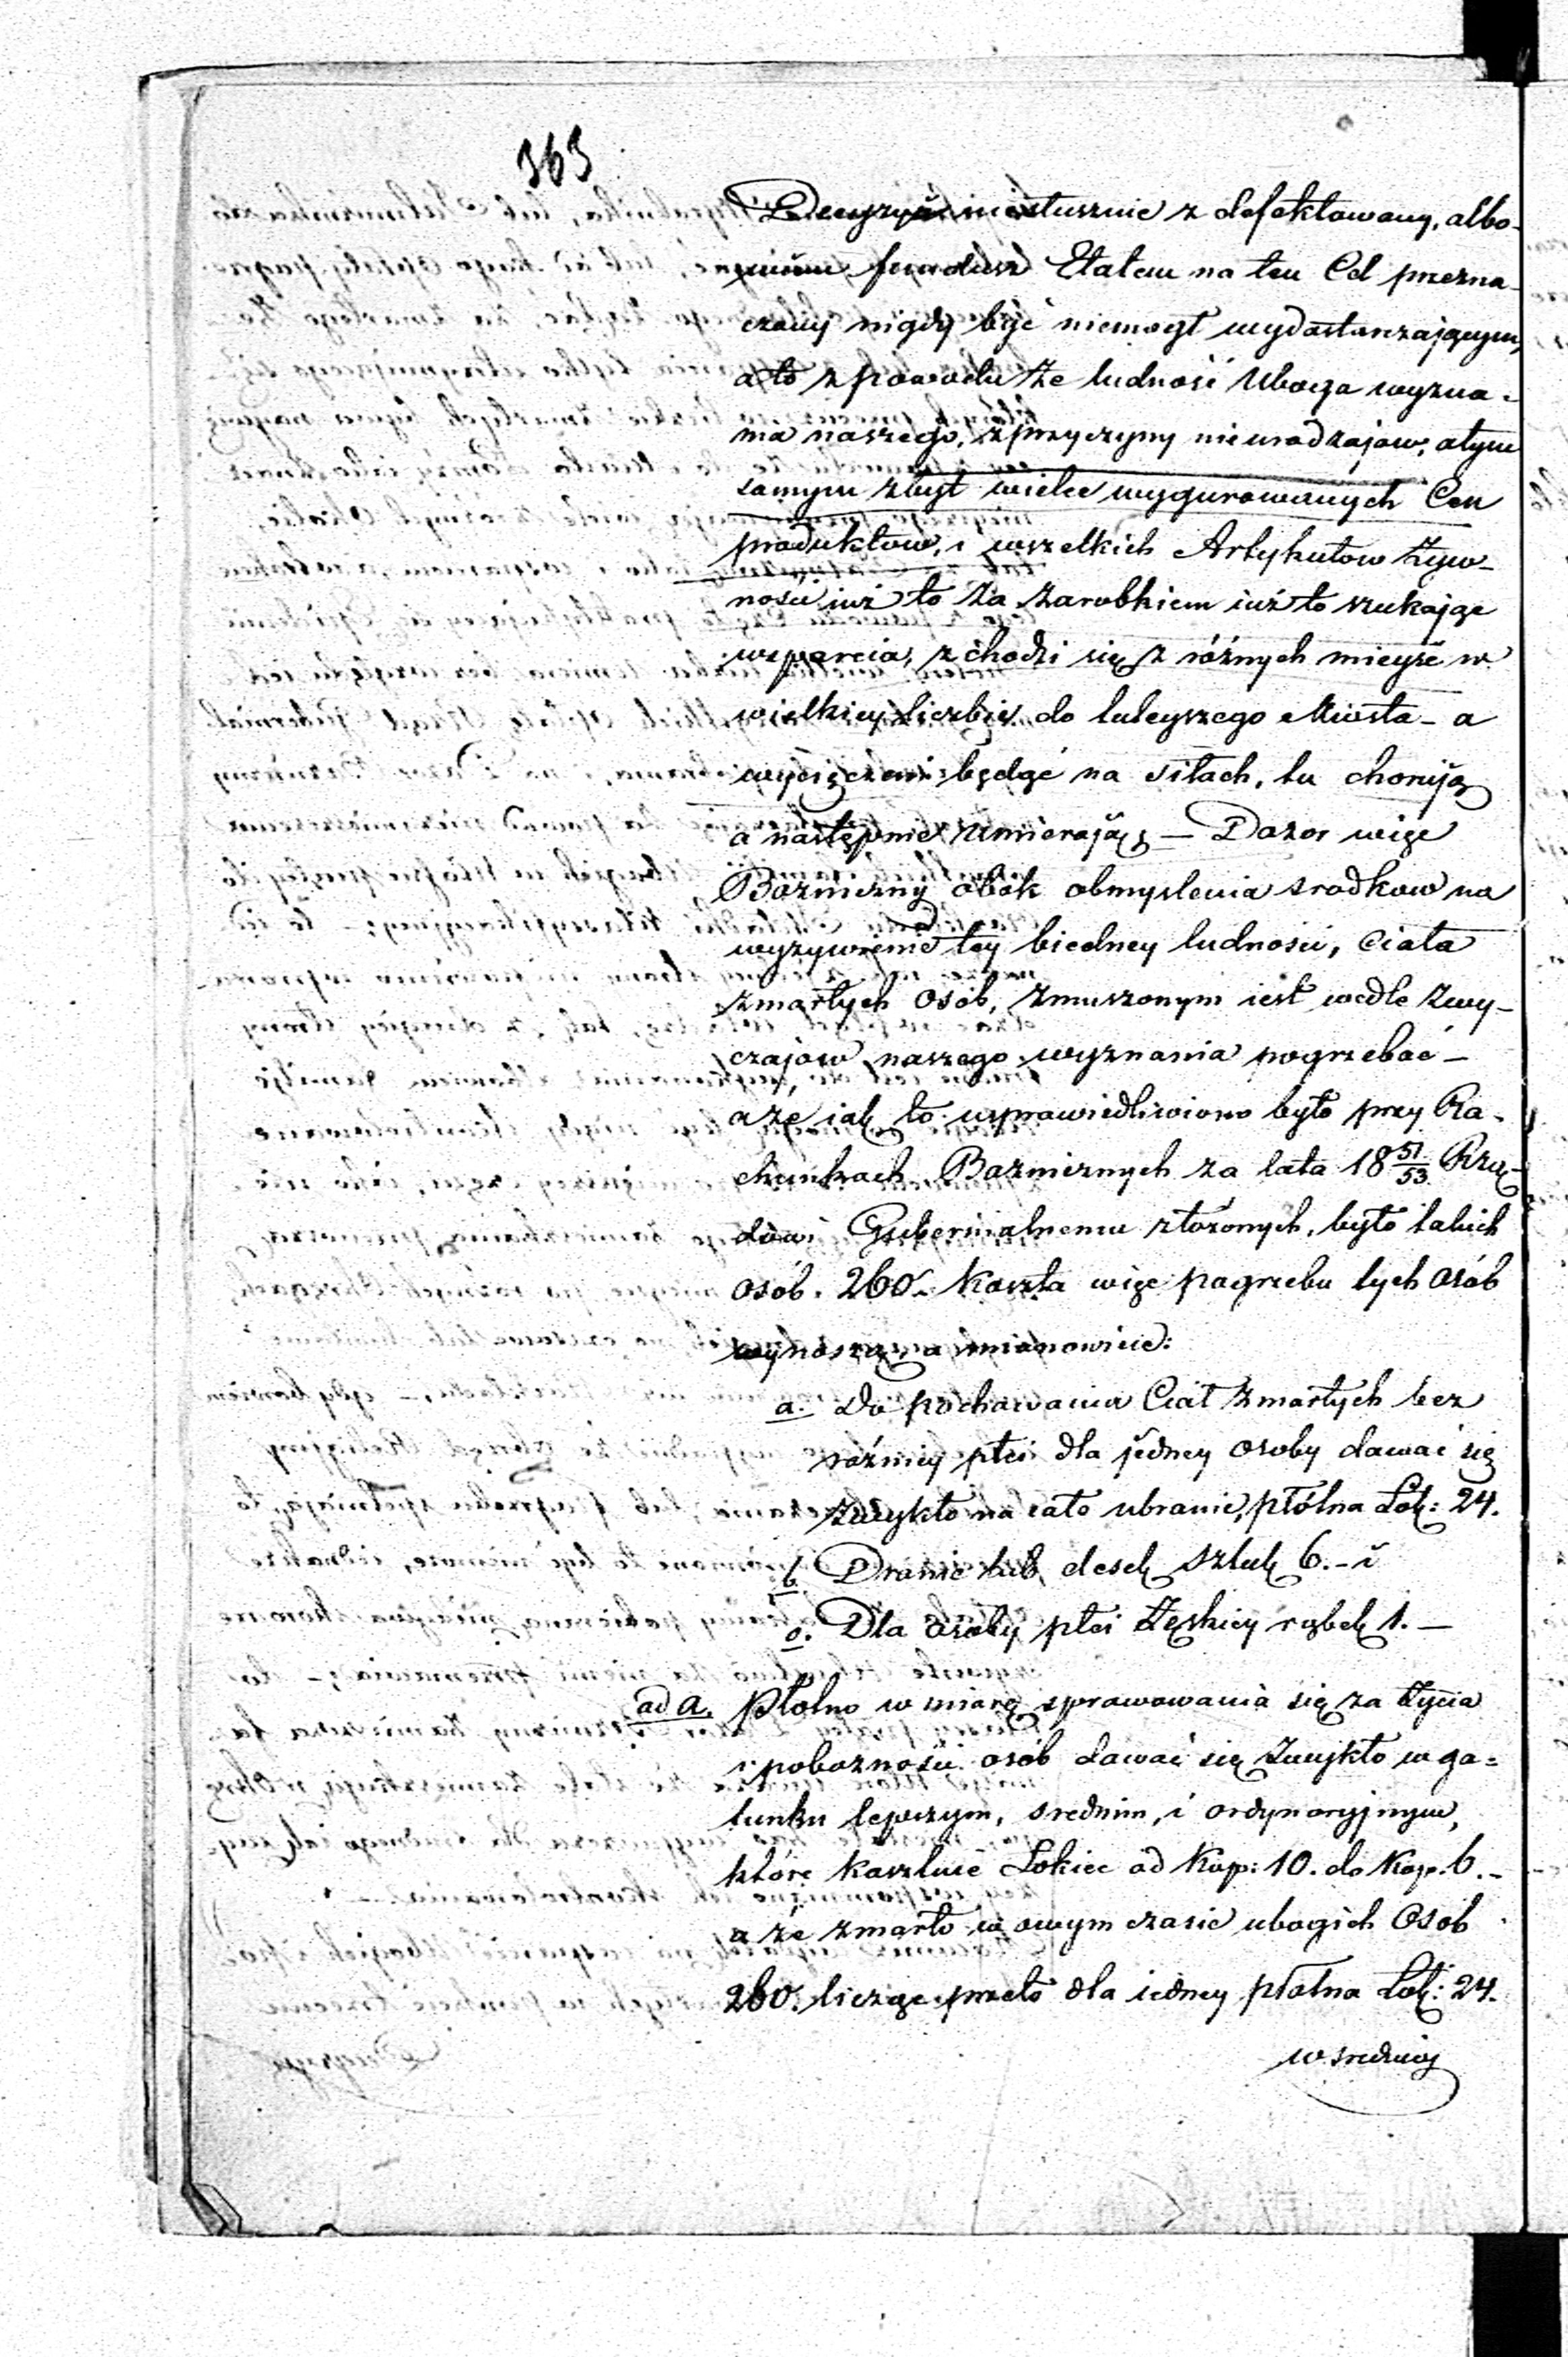 363
Decyzyą niesłusznie z defektowany, albo-
wiem fundusz Etatem na ten Cel przezna-
czony nigdy być niemogł wydostarczającym,
a to z powodu że ludność Uboga wyzna-
nia naszego, z przyczyny nieurodzajow, atym
samym zbyt wielce wygurowanych Cen
produktow, i wszelkich Artykułow Żyw-
nosci iuż to za zarobkiem iuż to szukając
wsparcia, z chodzi się z różnych mieysc w
wielkiey liczbie do tuteyszego Miasta - a
wycięczeni będąc na siłach, tu choruią
a następnie umieraią, — Dozor więc
Bozniczny obok obmyslenia srodkow na
wyzywienie tey biedney ludnosci, Ciała
zmarłych osób, zmuszonym iest wedle zwy-
czajow naszego wyznania pogrzebać —
a że iak to usprawiedliwiono było przy Ra-
chunkach Bozniczny​ch za lata 18 51/53 Rzą-
dowi Gubernialnemu złożonych, było takich
osób. 260. Koszta więc pogrzebu tych osób
wynoszą, a mianowicie:
a. Do pochowania Ciał zmarłych bez
różnicy płci dla jedney osoby dawać się
zwykło na całe ubranie, płótna Łok: 24.
b. Dranic lub desek sztuk 6. - i
c. Dla osoby płci Żęskiey rąbek 1. —
ad a. Płotno w miarę sprawowania się za Życia
i pobożności osób dawać się zwykło w ga-
tunku lepszym, srednim, i ordynaryjnym,
które kosztuie Łokiec od Kop: 10. do Kop. 6. -
a że zmarło w owym czasie ubogich Osob
260. licząc przeto dla iedney płotna Łok: 24.
w sredniey